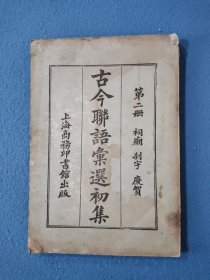 第二冊 祠廟 刹宇 慶賀
古今聯語彙選初集
上海商務印書館出版